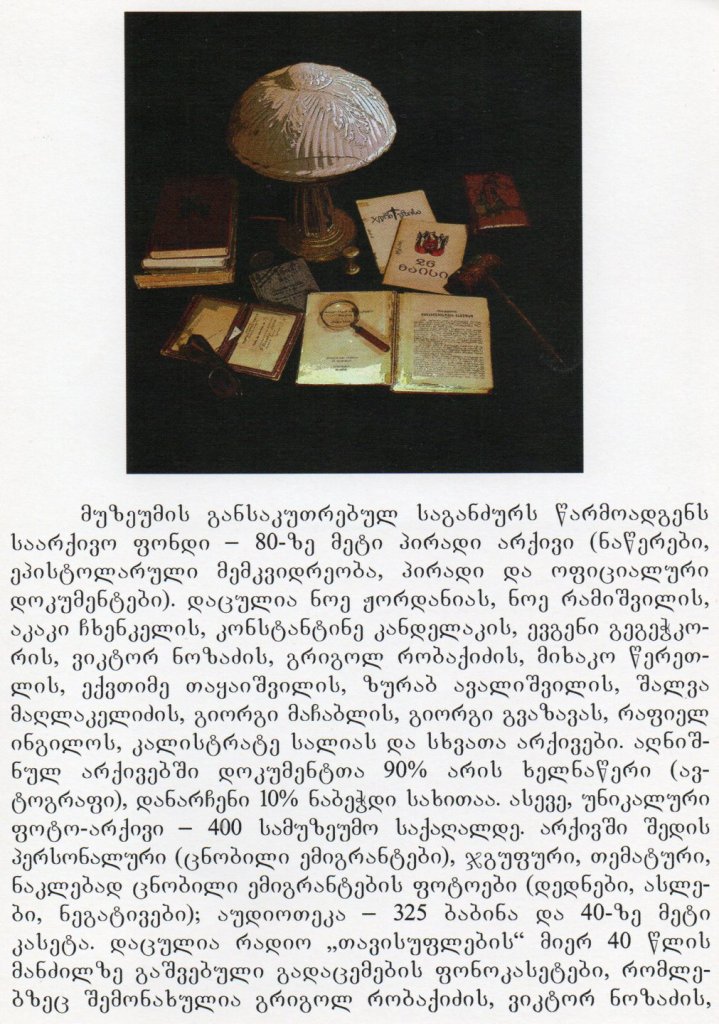 26
მაისი
მუზეუმის განსაკუთრებულ საგანძურს წარმოადგენს
საარქივო ფონდი – 80-ზე მეტი პირადი არქივი (ნაწერები,
ეპისტოლარული მემკვიდრეობა, პირადი და ოფიციალური
დოკუმენტები). დაცულია ნოე ჟორდანიას, ნოე რამიშვილის,
აკაკი ჩხენკელის, კონსტანტინე კანდელაკის, ევგენი გეგეჭკო-
რის, ვიკტორ ნოზაძის, გრიგოლ რობაქიძის, მიხაკო წერეთ-
ლის, ექვთიმე თაყაიშვილის, ზურაბ ავალიშვილის, შალვა
მაღლაკელიძის, გიორგი მაჩაბლის, გიორგი გვაზავას, რაფიელ
ინგილოს, კალისტრატე სალიას და სხვათა არქივები. აღნიშ-
ნულ არქივებში დოკუმენტთა 90% არის ხელნაწერი (ავ-
ტოგრაფი), დანარჩენი 10% ნაბეჭდი სახითაა. ასევე, უნიკალური
ფოტო-არქივი – 400 სამუზეუმო საქაღალდე. არქივში შედის
პერსონალური (ცნობილი ემიგრანტები), ჯგუფური, თემატური,
ნაკლებად ცნობილი ემიგრანტების ფოტოები (დედნები, ასლე-
ბი, ნეგატივები); აუდიოთეკა – 325 ბაბინა და 40-ზე მეტი
კასეტა. დაცულია რადიო „თავისუფლების“ მიერ 40 წლის
მანძილზე გაშვებული გადაცემების ფონოკასეტები, რომლე-
ბზეც შემონახულია გრიგოლ რობაქიძის, ვიკტორ ნოზაძის,